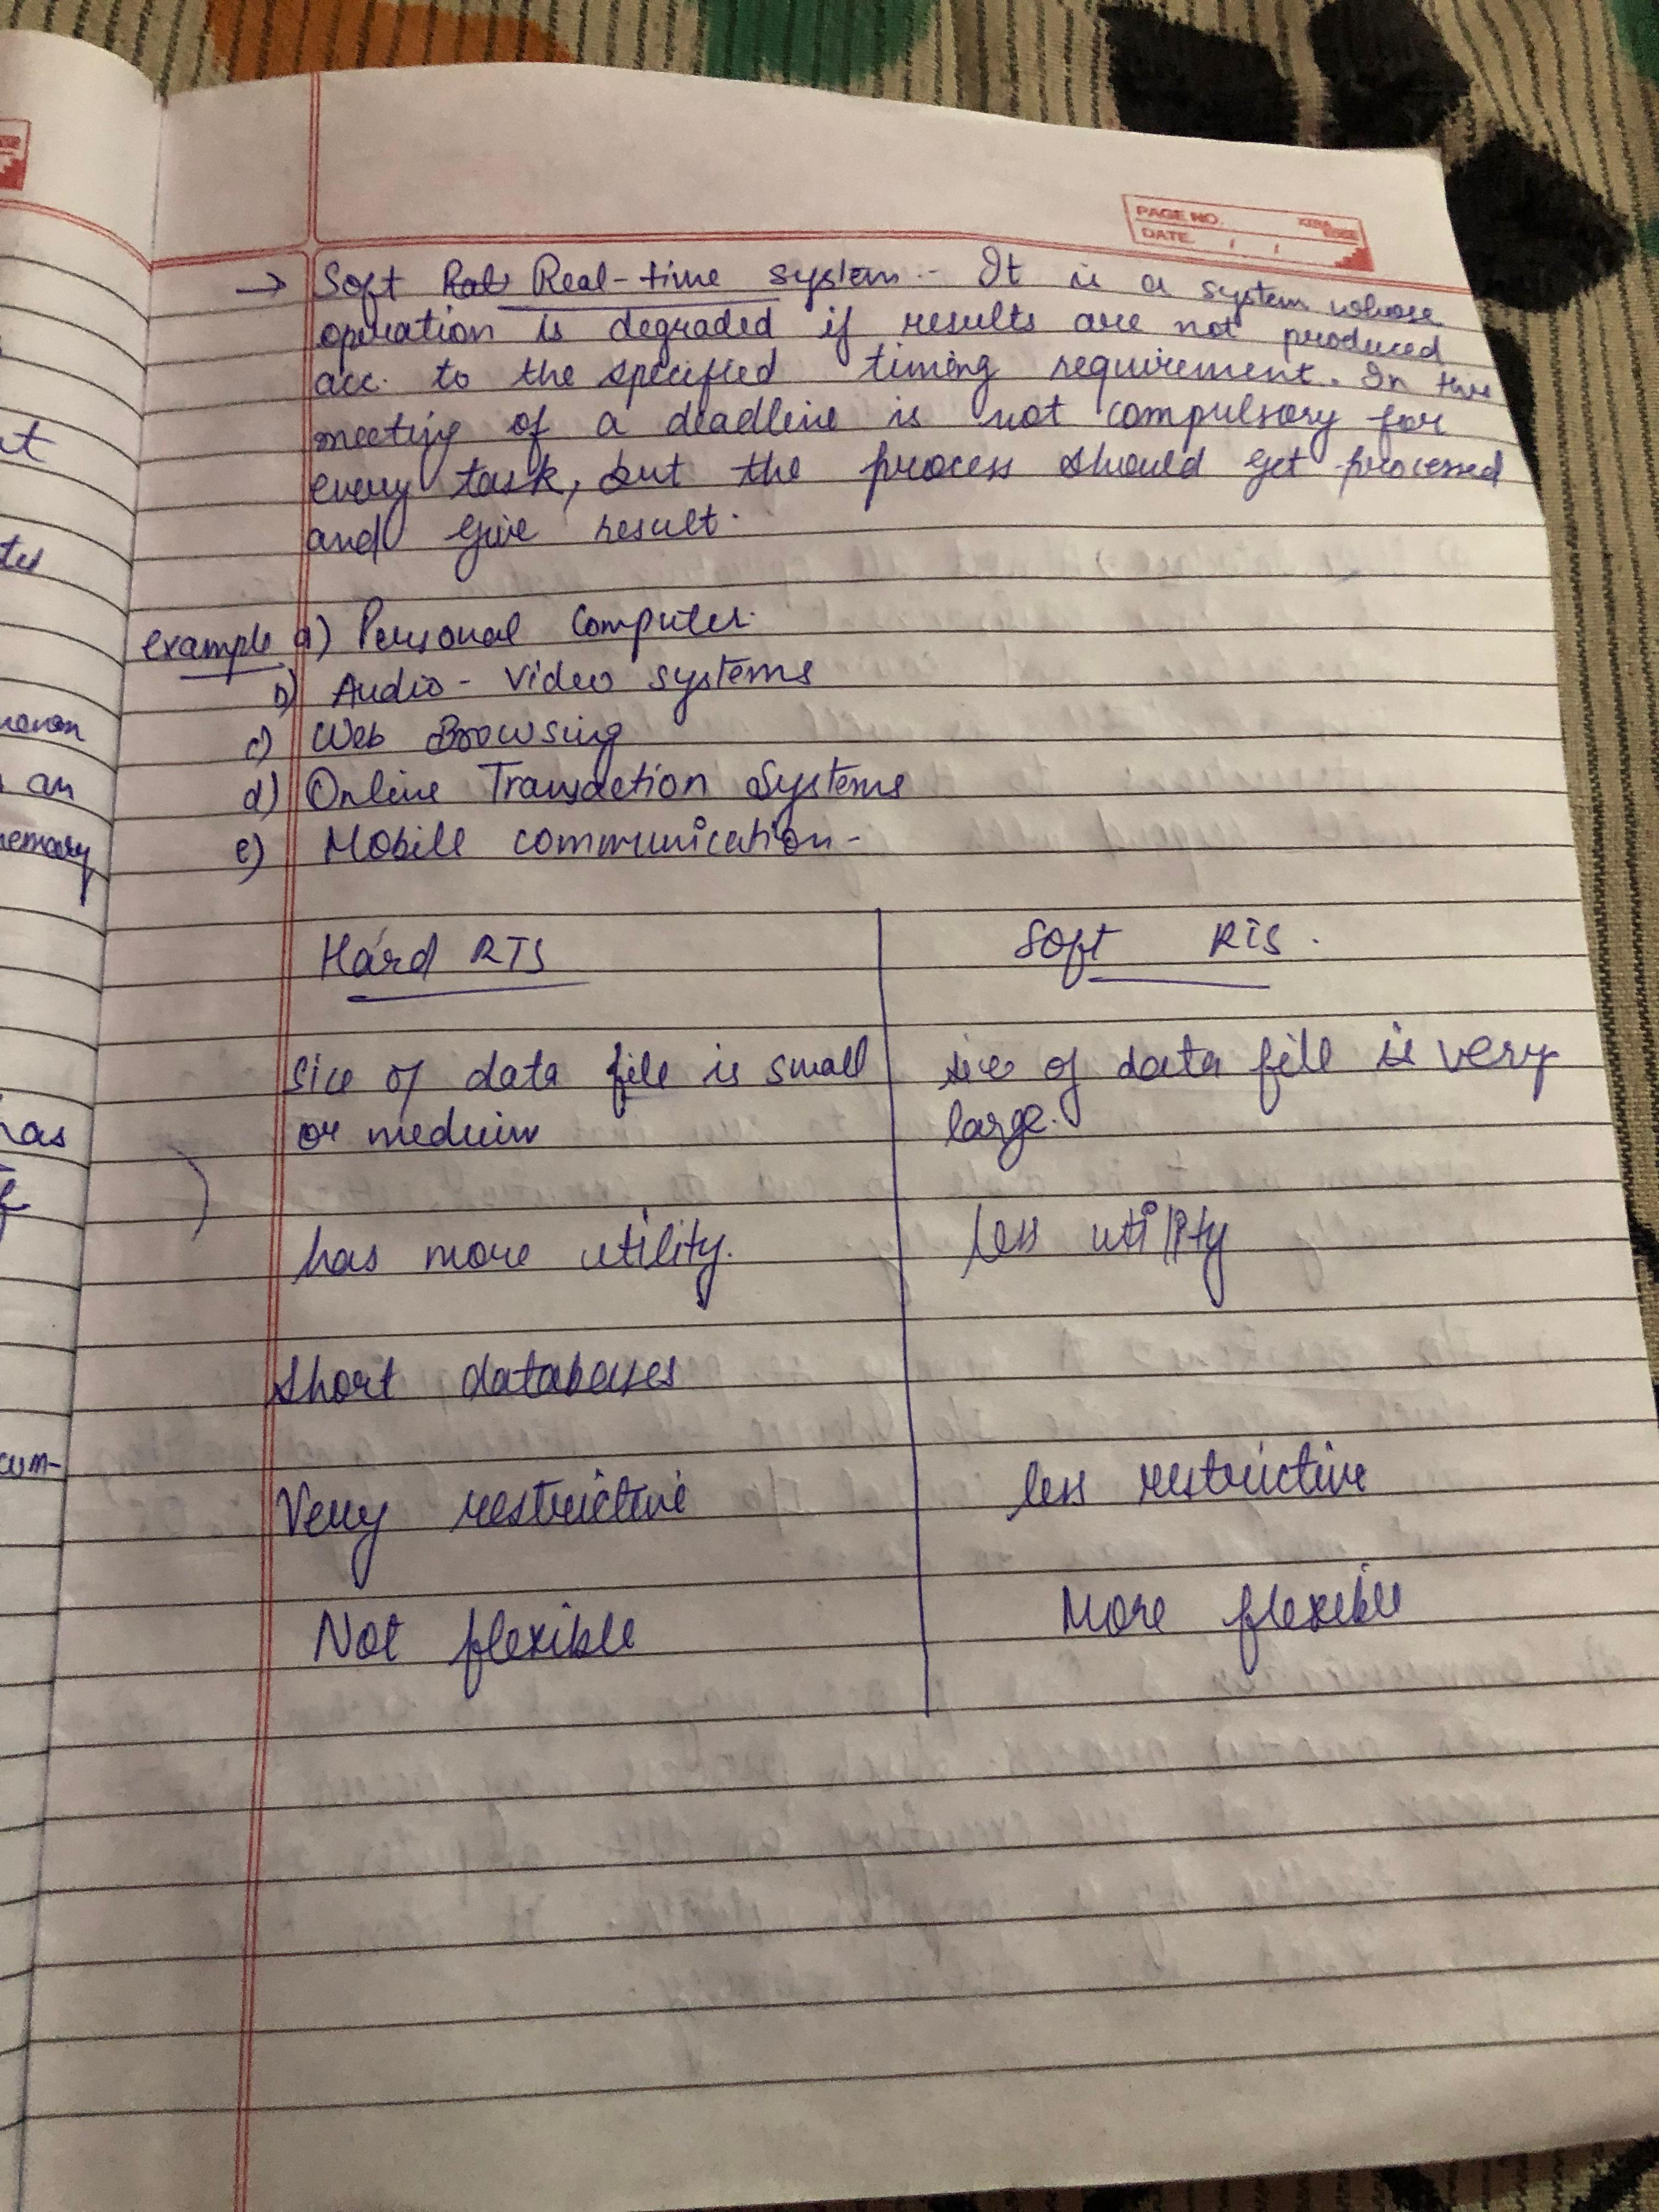 PAGE NO.
DATE. / /
→ Soft Real-time system - It is a system whose
operation is degraded if results are not produced
acc. to the specified timing requirement. In this
meeting of a deadline is not compulsory for
every task, but the process should get processed
and give result.
example a) Personal Computer.
b) Audio - Video systems
c) Web Browsing
d) Online Transaction Systems
e) Mobile communication -
Hard RTS | Soft RTS.
Size of data file is small | size of data file is very
or medium | large.
has more utility. | less utility
Short databases
Very restrictive | less restrictive
Not flexible | More flexible
an
memory
has